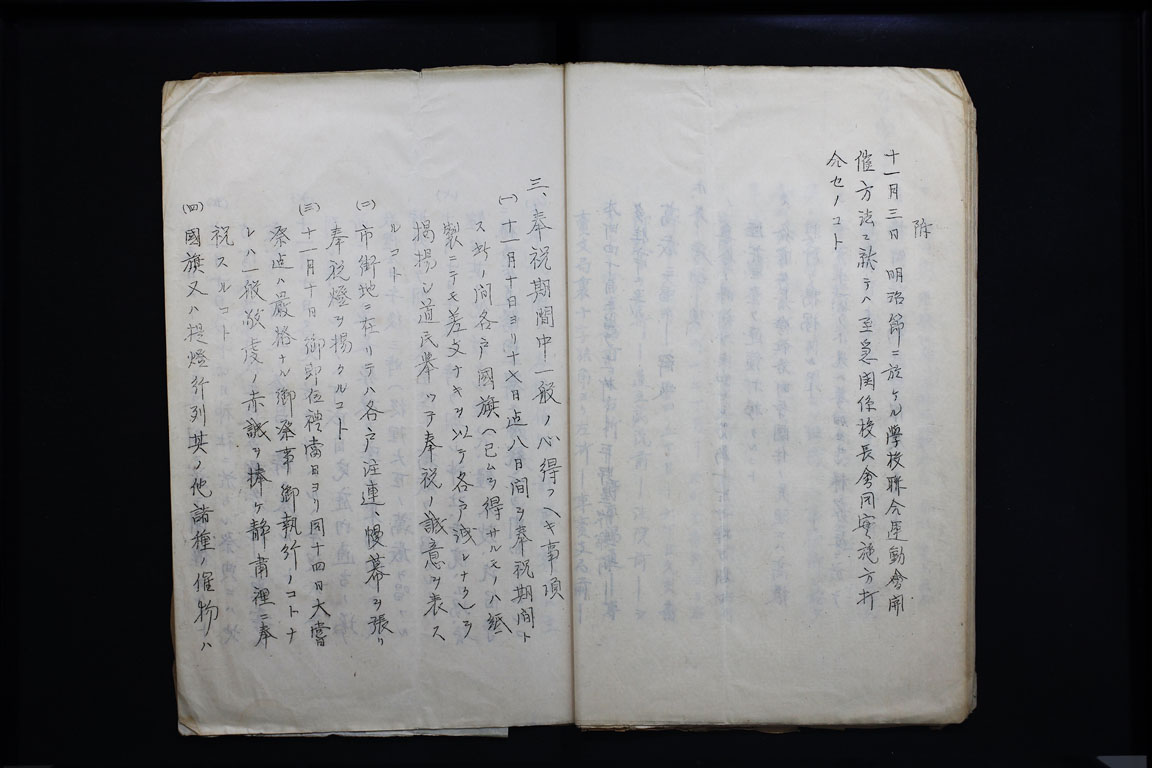 附
十一月三日明治節ニ於ケル學校聯合運動會開
催方法ニ就テハ至急関係校長會同実施方打
合セノコト
三、奉祝期間中一般ノ心得フヘキ事項
(一)十一月十日ヨリ十七日迄八日間ヲ奉祝期間ト
ス此ノ間各戸國旗(已ムヲ得サルモノハ紙
製ニテモ差支ナキヲ以テ各戸洩レナク)ヲ
掲揚シ道民擧ッテ奉祝ノ誠意ヲ表ス
ルコト
(二)市街地ニ在リテハ各戸注連、幔幕ヲ張リ
奉祝燈ヲ揚クルコト
(三)十一月十日御即位禮當日ヨリ同十四日大嘗
祭迄ハ嚴粛ナル御祭事御執行ノコトナ
レハ一般敬虔ノ赤誠ヲ捧ケ静肅裡ニ奉
祝スルコト
(四)國旗又ハ提燈行列其ノ他諸種ノ催物ハ